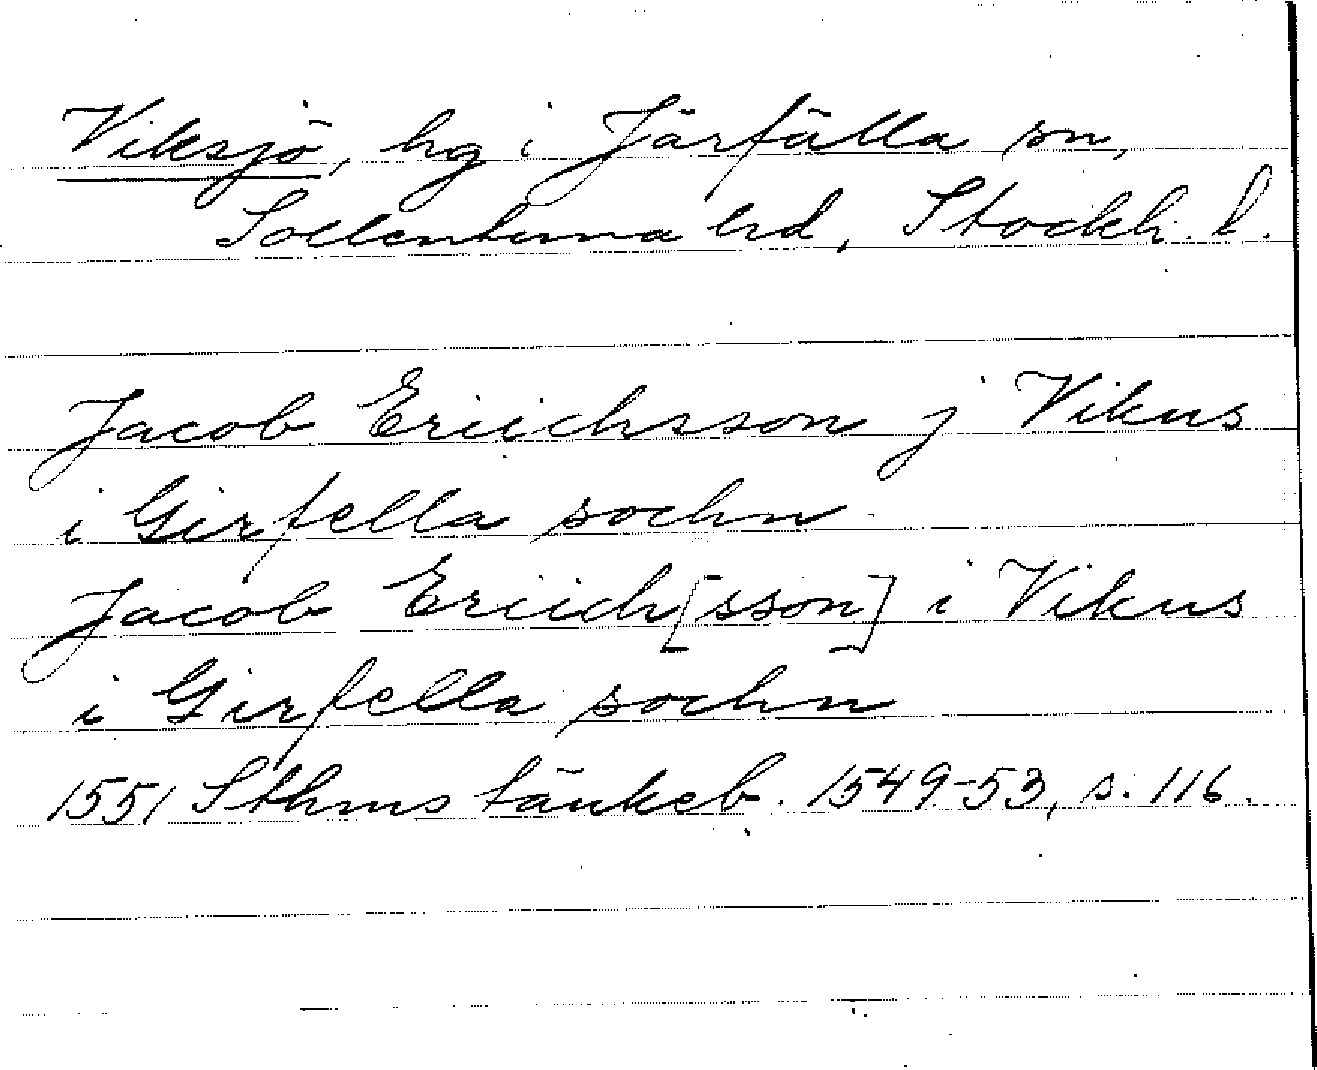 Viksjö, hg i Järfälla sn,
Sollentuna hd, Stockh. l.
Jacob Eriichsson j Vikus
i Girfella sochn
Jacob Eriich[sson] i Vikus
i Girfella sochn
1551 Sthms tänkeb. 1549-53, s. 116.